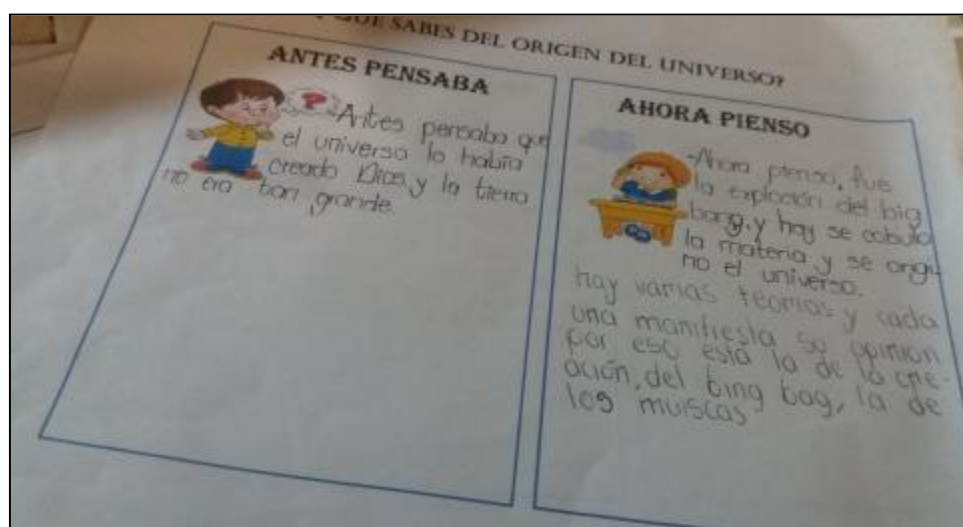 QUE SABES DEL ORIGEN DEL UNIVERSO?
ANTES PENSABA
-Antes pensaba que
el universo lo había
creado Dios, y la tierra
no era tan grande.
AHORA PIENSO
-Ahora pienso, fue
la explosión del big
bang, y hay se
la materia y se origi
no el universo.
hay varias teorias y cada
una manifiesta su opinion
por eso está la de la cre-
ación, del bing bag, la de
los muiscas